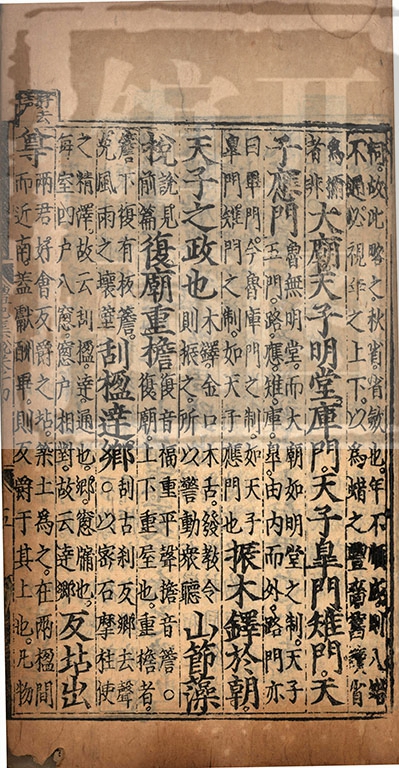 同故此略之秋省省斂也年不順成則八蜡
不通必視年之上下以為蜡之豐嗇舊讀省
為獮者非大廟天子明堂庫門天子皋門雉門天
子應門魯無明堂而大廟如明堂之制天子五門路應雉庫皋由內而外路門亦
曰畢門今魯庫門之制如天子皋門雉門之制如天子應門也振木鐸於朝
天子之政也木鐸金口木舌發教令則振之所以警動衆聽山節藻
梲說見前篇復廟重檐復音福重平聲檐音簷○復廟上下重屋也重檐者
簷下復有板簷免風雨之壞壁刮楹達鄉刮古刹反鄉去聲○以密石摩柱使
之精澤故云刮楹達通也鄉窓牖也每室四户八窓窓户相對故云達鄉反坫出
尊兩君好會反爵之坫築土為之在兩楹間而近南蓋獻酬畢則反爵于其上也凡物